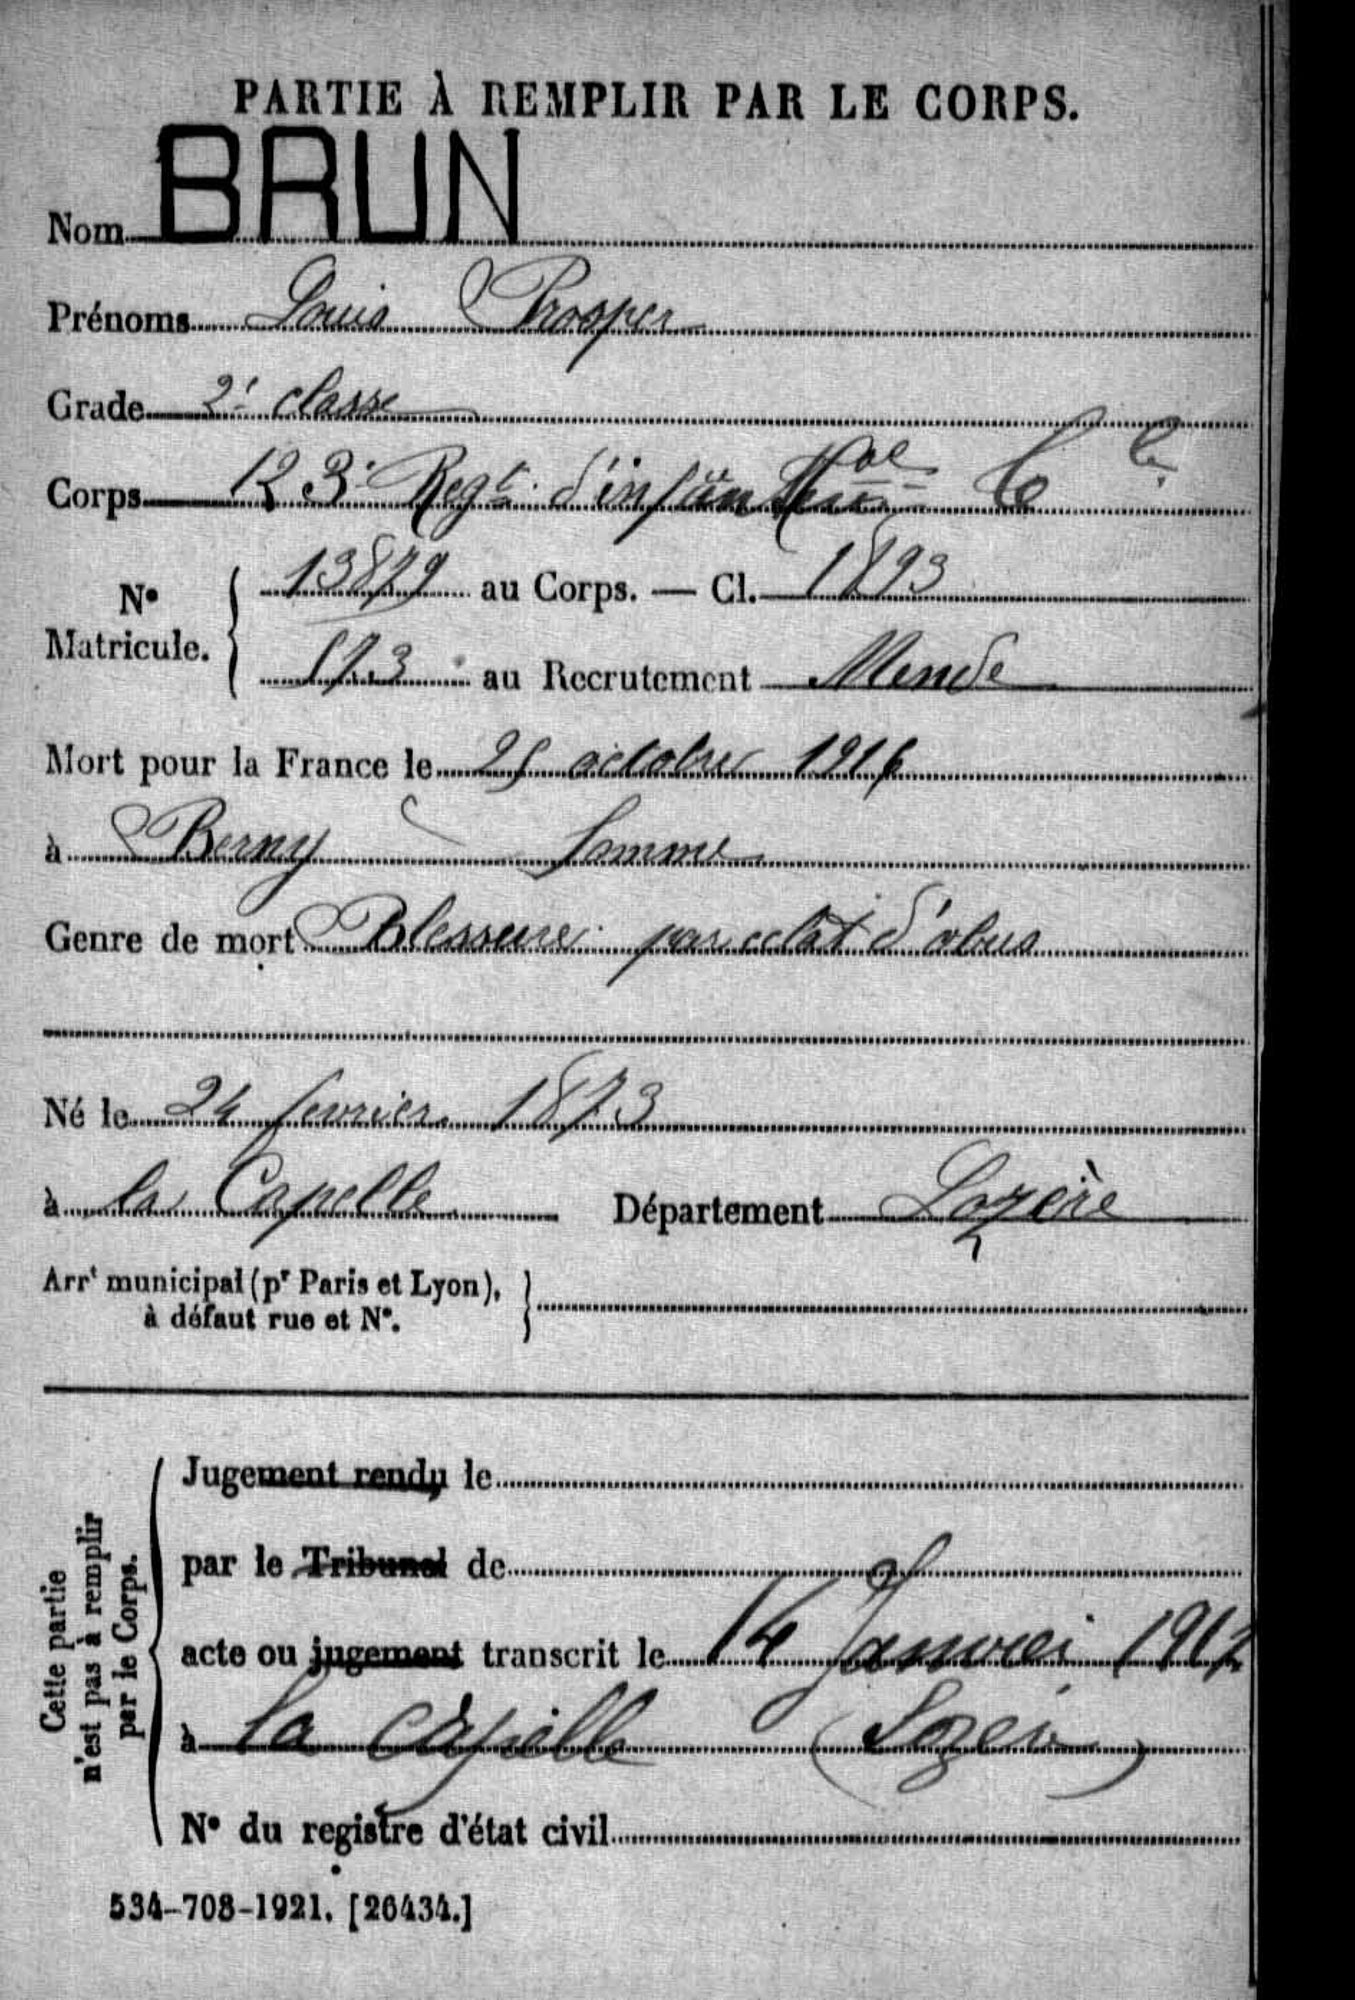 PARTIE À REMPLIR PAR LE CORPS.
Nom BRUN
Prénoms Louis Prosper
Grade 2e classe
Corps 123e Regt d'infanterie
N° Matricule. 13879 au Corps. — Cl. 1893
573 au Recrutement Mende
Mort pour la France le 25 octobre 1916
à Berny Somme
Genre de mort Blessure par eclat d'obus
Né le 24 fevrier 1873
à la Capelle Département Lozère
Arrt municipal (pr Paris et Lyon),
à défaut rue et N°.
Cette partie
n'est pas à remplir
par le Corps.
Jugement rendu le
par le Tribunal de
acte ou jugement transcrit le 14 Janvier 1917
à La Capelle (Lozère)
N° du registre d'état civil
534-708-1921. [26434.]